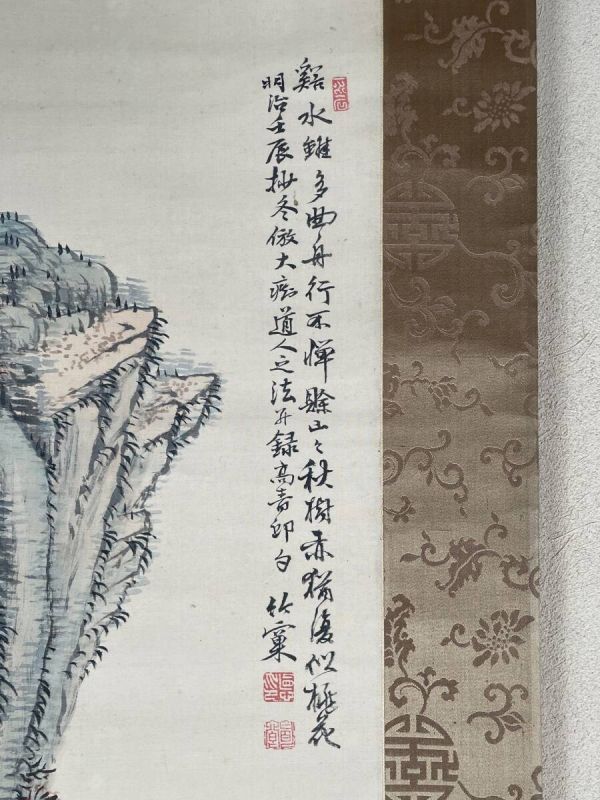 谿水雖多曲舟行不憚賒山々秋樹赤猶復似桃花
明治壬辰抄冬倣大痴道人之法并録高青邱句 竹窠